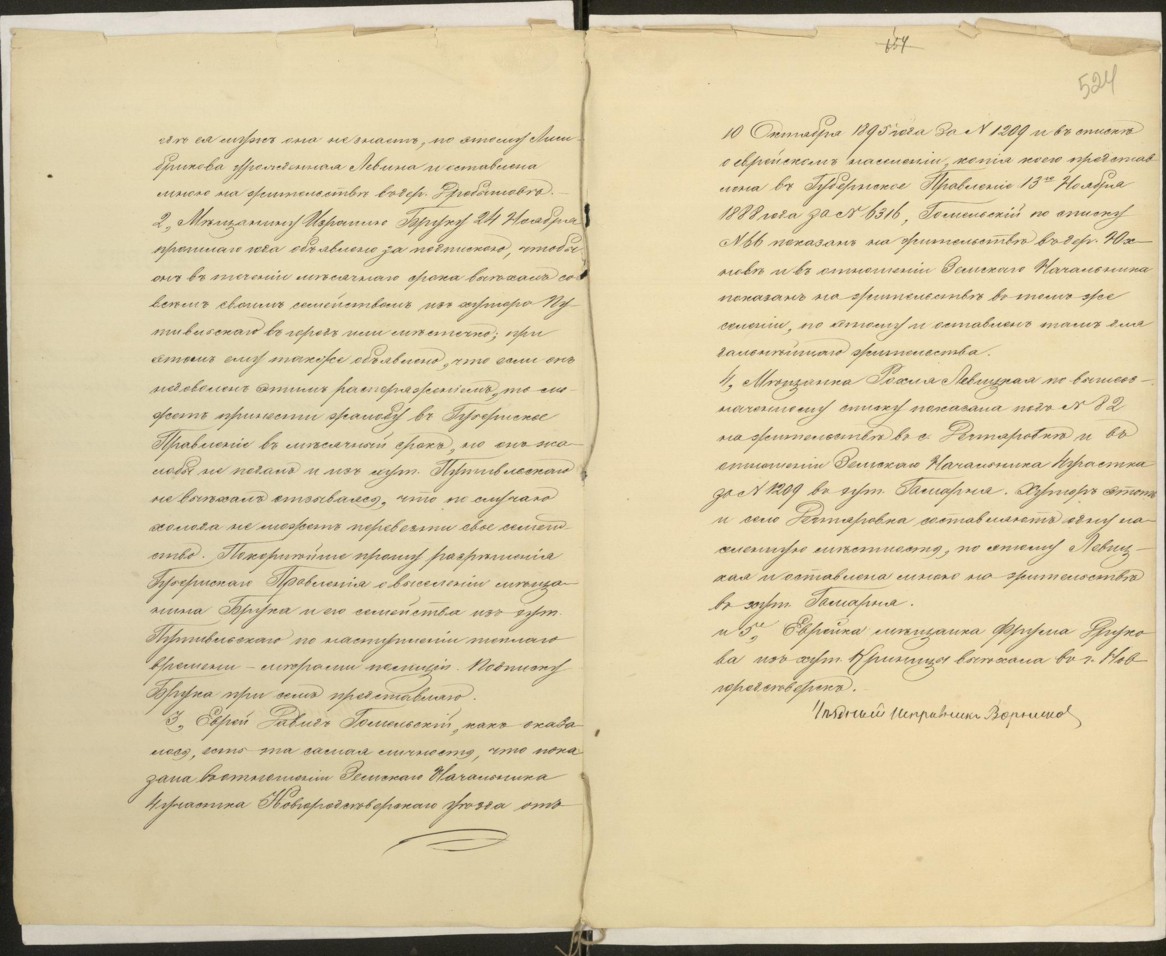 гдѣ ея мужъ она не знаетъ, по этому Лим-
брикова урожденная Левина и оставлена
мною на жительствѣ въ дер. Дробышовѣ. –
2, Мѣщанину Израилю Бруку 24 Ноября
прошлаго года объявлено за подпискою, чтобы
онъ въ теченіи мѣсячнаго срока выѣхалъ со
всѣмъ своимъ семействомъ изъ хутора Пу-
тивльскаго въ городъ или мѣстечко; при
этомъ ему также объявлено, что если онъ
недоволенъ этимъ распоряженіемъ, то мо-
жетъ принести жалобу въ Губернское
Правленіе въ мѣсячный срокъ, но онъ жа-
лобы не подалъ и изъ хут. Путивльскаго
не выѣхалъ отзываясь, что по случаю
холода не можетъ перевезти свое семей-
ство. Покорнѣйше прошу разрѣшенія
Губернскаго Правленія о выселеніи мѣща-
нина Брука и его семейства изъ хут.
Путивльскаго по наступленіи теплаго
времени – мѣрами полиціи. Подписку
Брука при семъ представляю.
3, Еврей Давидъ Гомельскій, какъ оказа
лось, есть та самая личность, что пока
зана въ отношеніи Земскаго Начальника
4 участка Новгородсѣверскаго уѣзда отъ
654
524
10 Октября 1895 года за N 1209 и въ спискѣ
о еврейскомъ населеніи, копія коего представ
лена въ Губернское Правленіе 13го Ноября
1888 года за N 6316, Гомельскій по списку
N 66 показанъ на жительствѣ въ дер. Юх-
новѣ и въ отношеніи Земскаго Начальника
показанъ на жительствѣ въ томъ же
селеніи, по этому и оставленъ тамъ для
дальнѣйшаго жительства.
4, Мѣщанка Рохля Левицкая по вышеоз-
наченному списку показана подъ N 82
на жительствѣ въ с. Дегтяровкѣ и въ
отношеніи Земскаго Начальника 4 участка
за N 1209 въ хут. Гамарня. Хуторъ этотъ
и село Дегтяровка составляютъ одну на-
селенную мѣстность, по этому Левиц-
кая и оставлена мною на жительствѣ
въ хут. Гамарня.
и 5е, Еврейка мѣщанка Фрума Друко
ва изъ хут. Криница выѣхала въ г. Нов-
городсѣверскъ.
Уѣздный Исправникъ